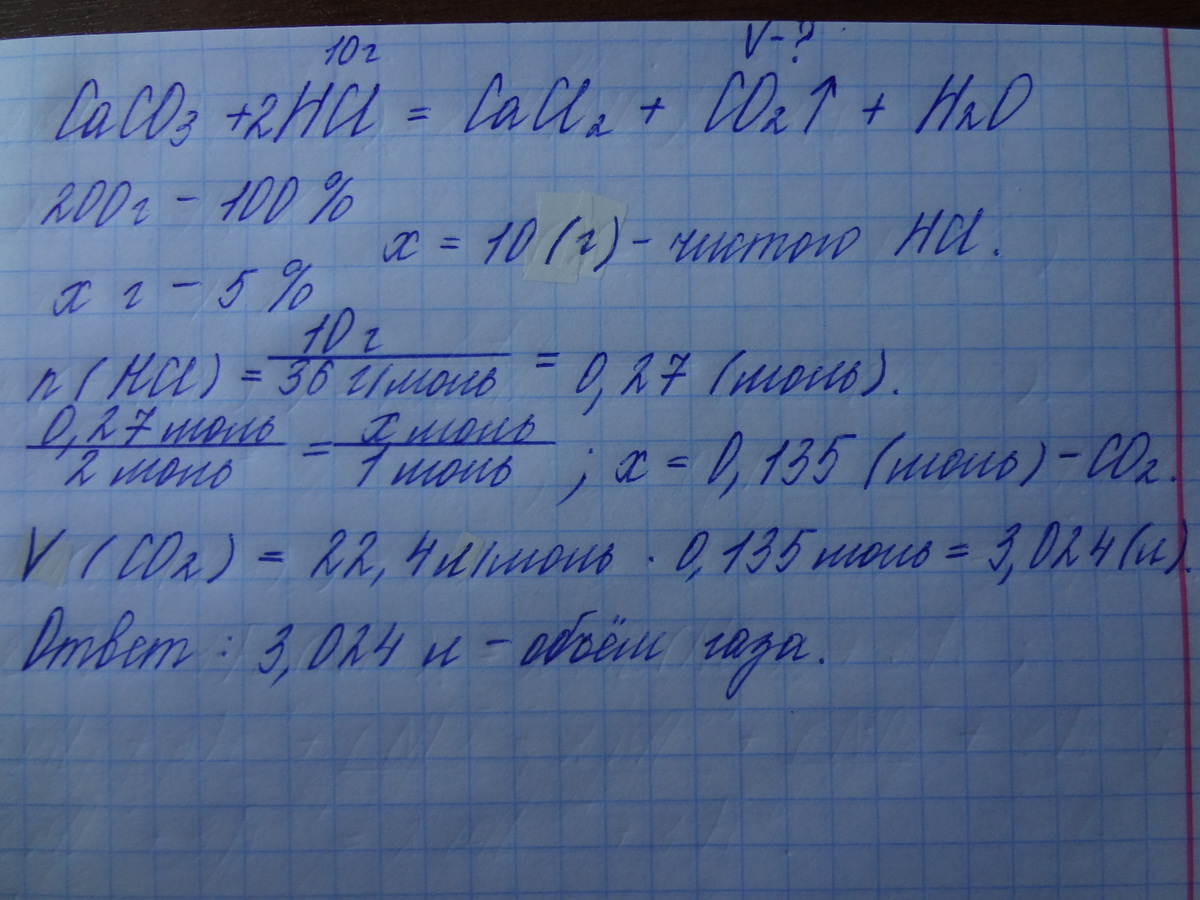 10г V-?
CaCO₃ +2HCl = CaCl₂ + CO₂↑ + H₂O
200г - 100%
x = 10 (г) - чистого HCl.
x г - 5%
n (HCl) = 10 г / 36 г/моль = 0,27 (моль).
0,27 моль / 2 моль = x моль / 1 моль ; x = 0,135 (моль) - CO₂.
V (CO₂) = 22,4 л/моль · 0,135 моль = 3,024 (л).
Ответ : 3,024 л - объём газа.